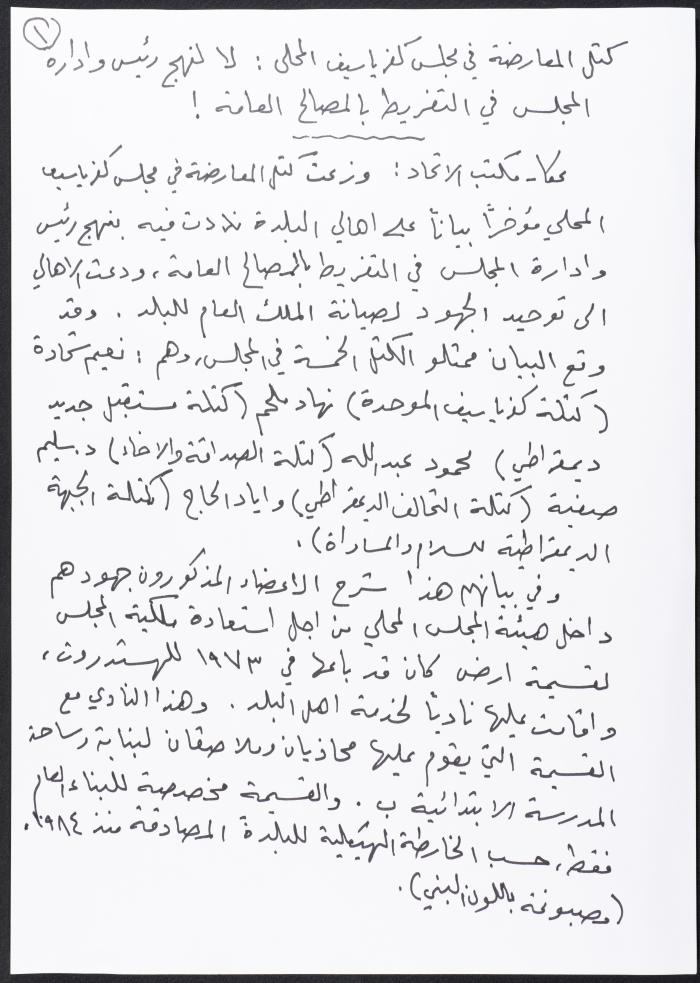 ١
كتل المعارضة في مجلس كفرياسيف المحلي: لا لنهج رئيس وادارة
المجلس في التفريط بالمصالح العامة!
عكا - مكتب الاتحاد: وزعت كتل المعارضة في مجلس كفرياسيف
المحلي مؤخراً بياناً على اهالي البلدة نددت فيه بنهج رئيس
وادارة المجلس في التفريط بالمصالح العامة، ودعت الاهالي
الى توحيد الجهود لصيانة الملك العام للبلد. وقد
وقع البيان ممثلو الكتل الخمسة في المجلس، وهم: نعيم شحادة
(كتلة كفرياسيف الموحدة) نهاد ملحم (كتلة مستقبل جديد
ديمقراطي) محمود عبدالله (كتلة الصداقة والاخاء) د. سليم
صفية (كتلة التحالف الديمقراطي) واياد الحاج (كتلة الجبهة
الديمقراطية للسلام والمساواة).
وفي بيانهم هذا شرح الاعضاء المذكورون جهودهم
داخل هيئة المجلس المحلي من اجل استعادة ملكية المجلس
لقسيمة ارض كان قد باعها في ١٩٧٣ للهستدروت،
واقامت عليها نادياً لخدمة اهل البلد. وهذا النادي مع
القسيمة التي يقوم عليها محاذيان وملاصقان لبناية وساحة
المدرسة الابتدائية ب. والقسيمة مخصصة للبناء العام
فقط، حسب الخارطة الهيكلية للبلدة المصادقة منذ ١٩٨٤.
(مصبوغة باللون البني).